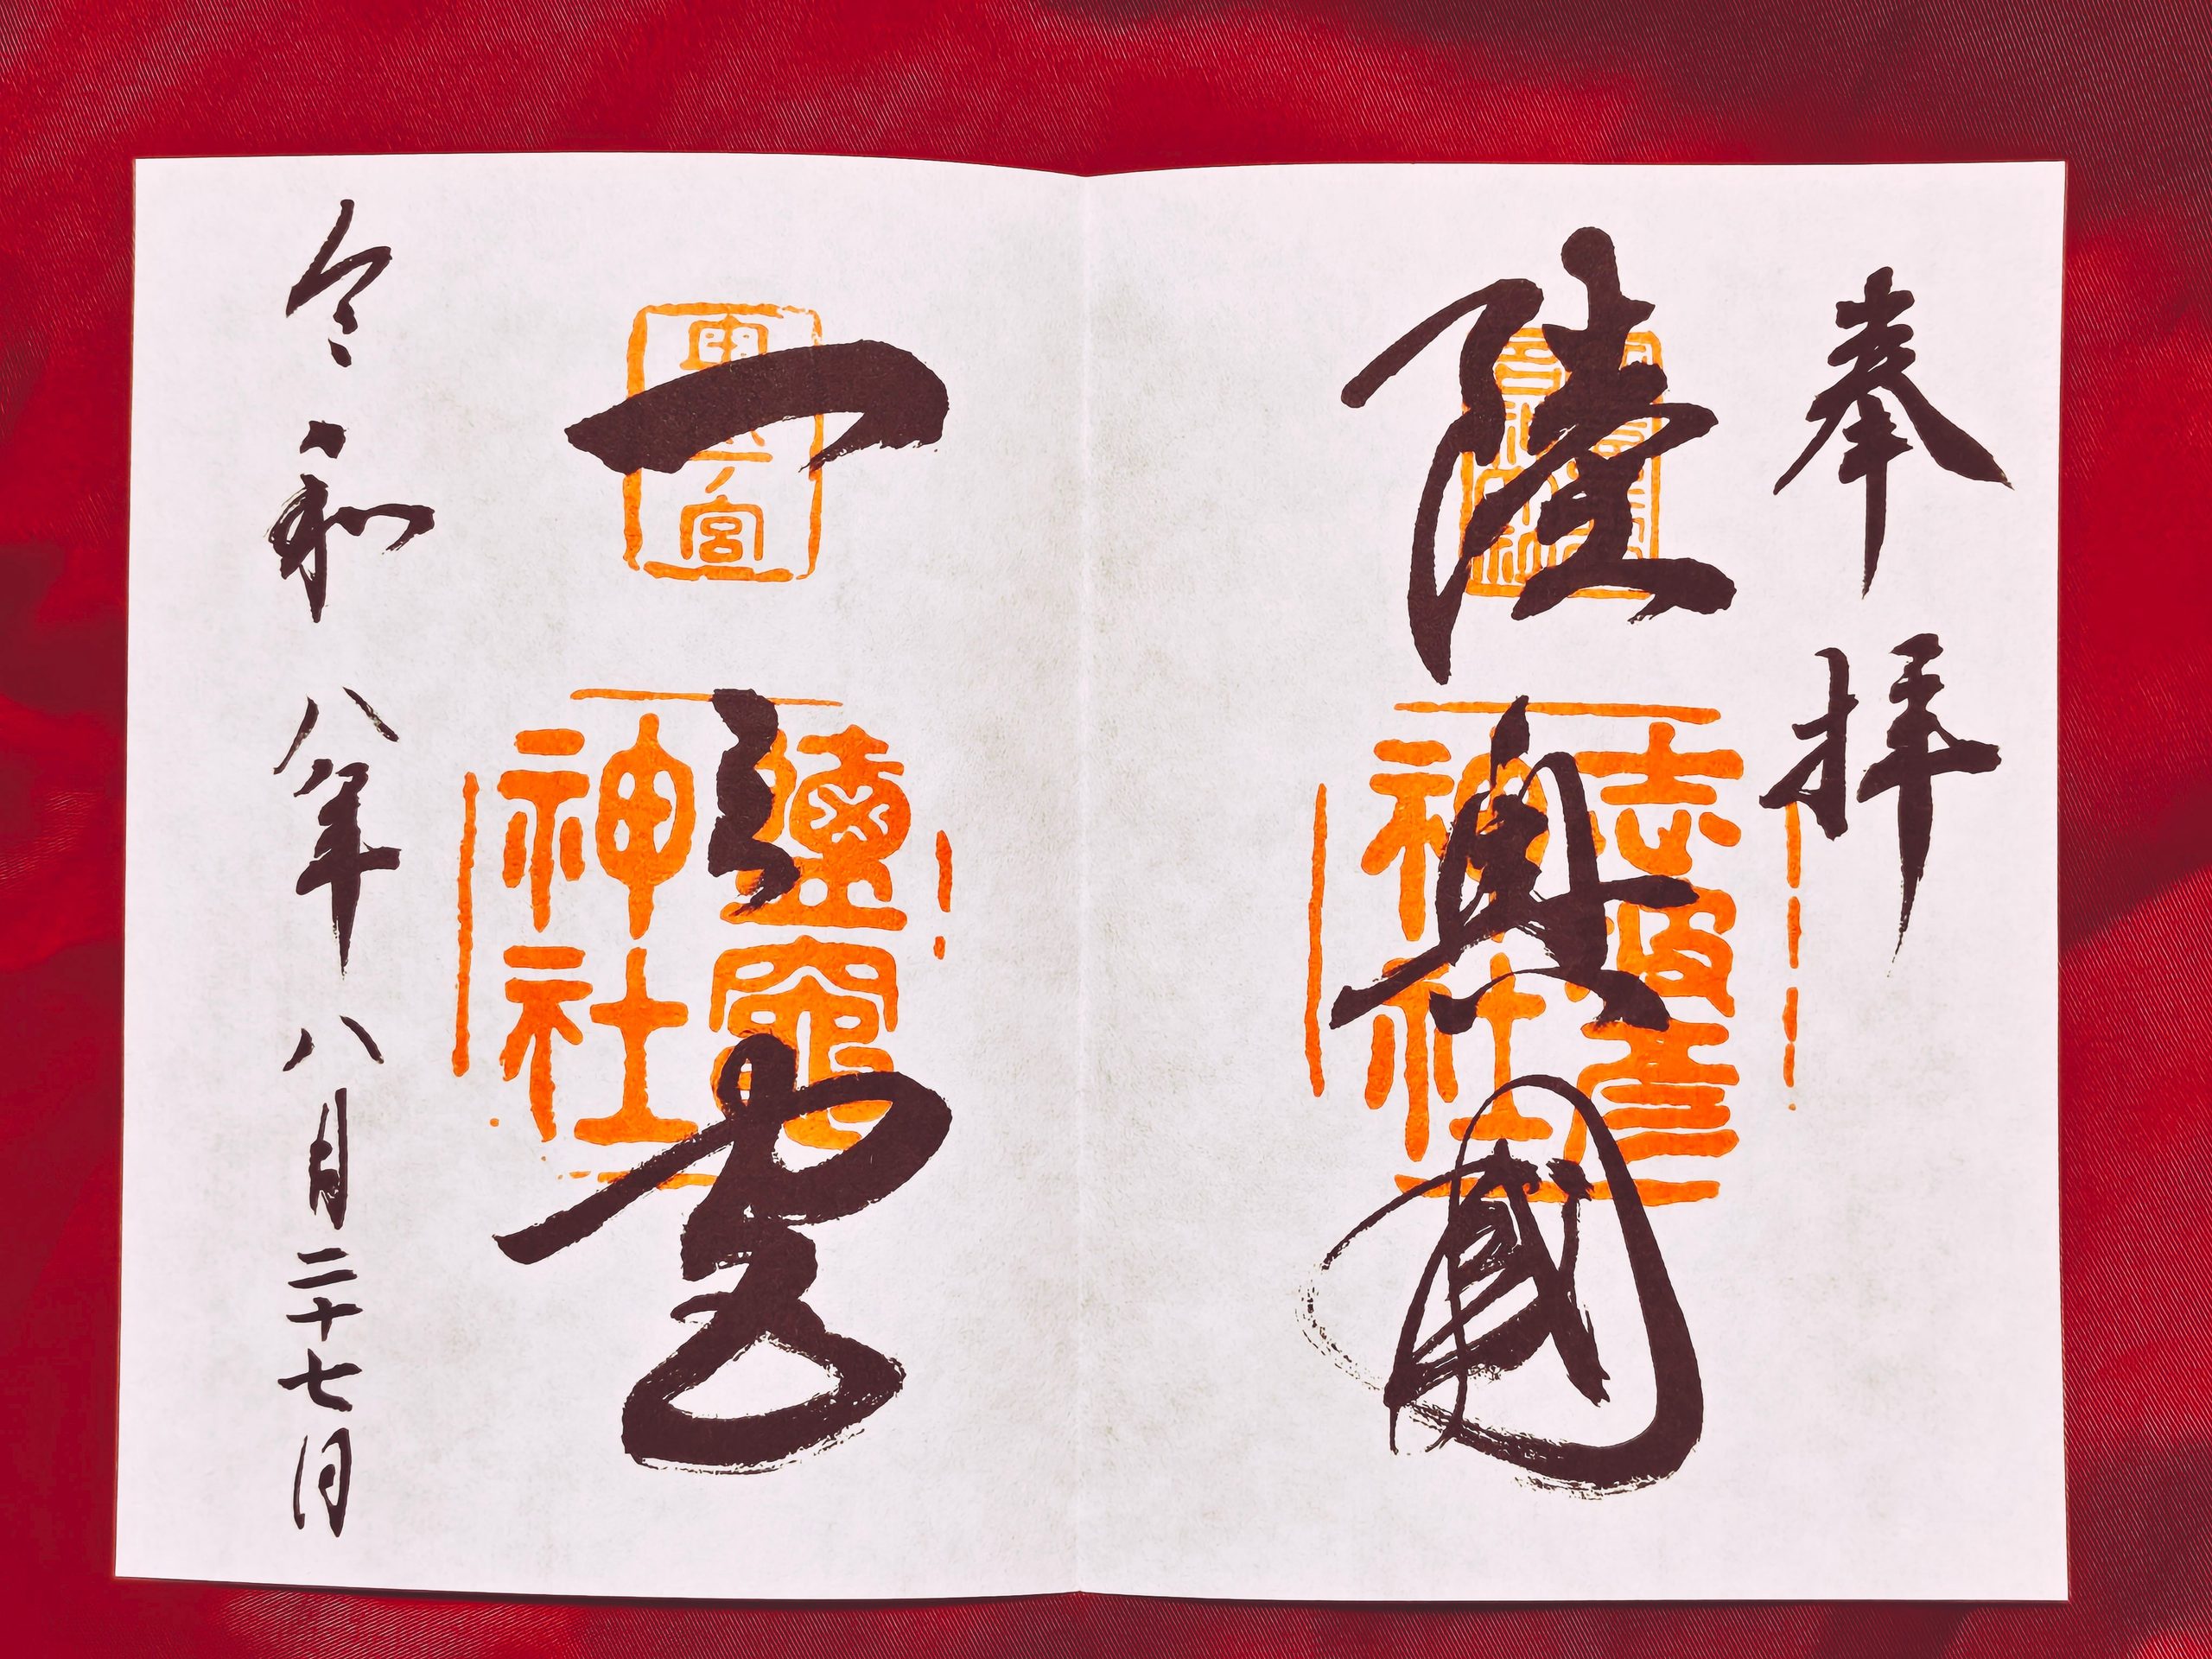 奉拝
陸奥國
志波彦神社
一之宮
東奥一ノ宮
鹽竈神社
令和八年八月二十七日